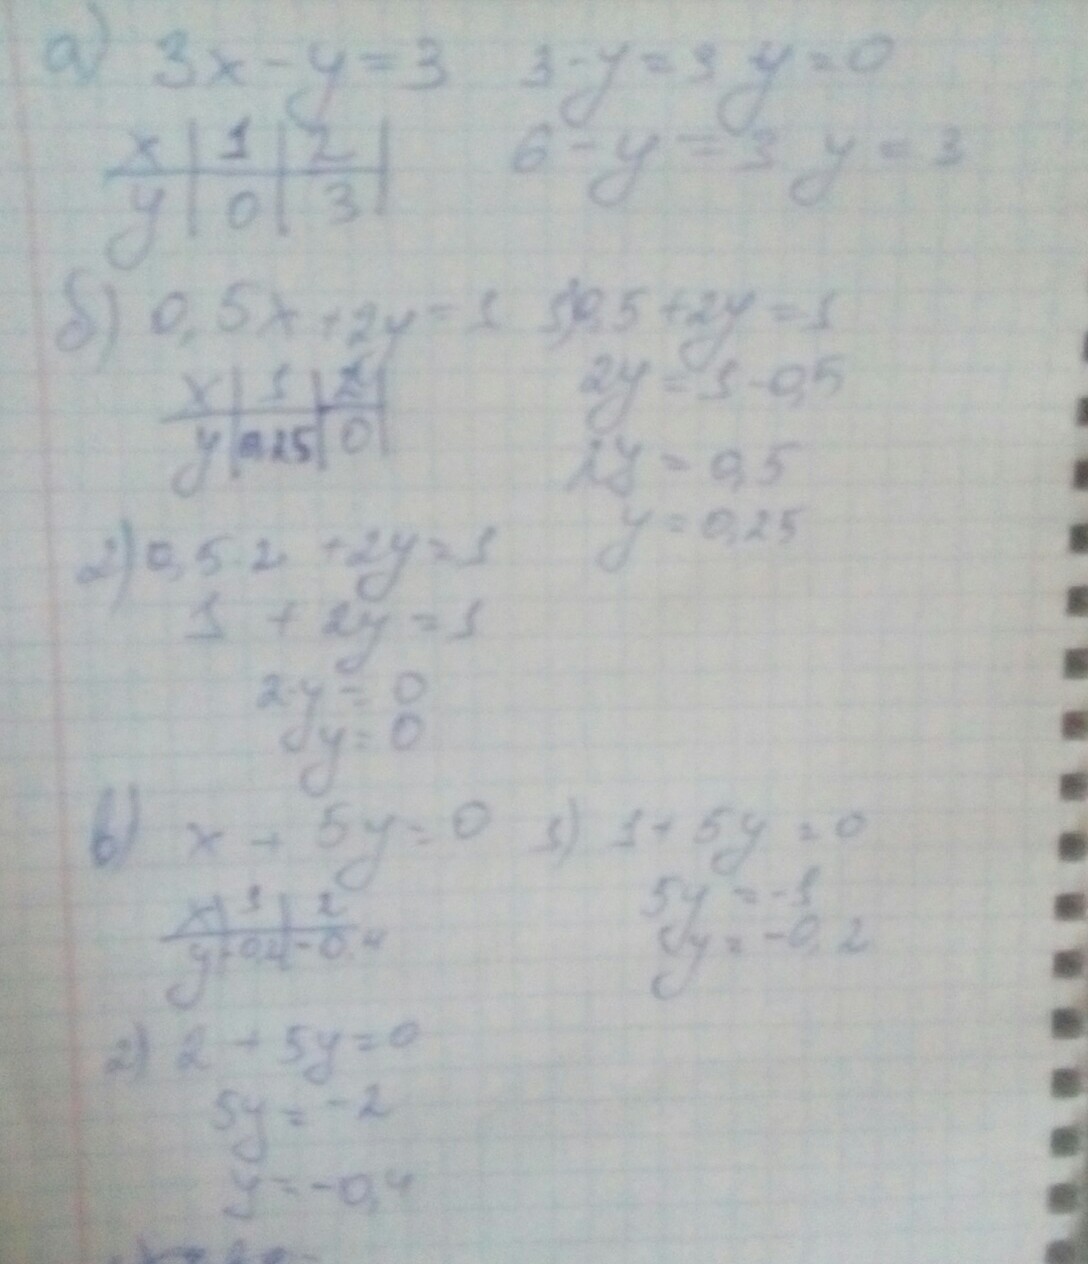 а) 3x - y = 3   3 - y = 3   y = 0
x | 1 | 2 |   6 - y = 3   y = 3
y | 0 | 3 |
б) 0,5x + 2y = 1   1) 0,5 + 2y = 1
x | 1 | 2 |   2y = 1 - 0,5
y | 0,25 | 0 |   2y = 0,5
y = 0,25
2) 0,5·2 + 2y = 1
1 + 2y = 1
2y = 0
y = 0
в) x + 5y = 0   1) 1 + 5y = 0
x | 1 | 2   5y = -1
y | -0,2 | -0,4   y = -0,2
2) 2 + 5y = 0
5y = -2
y = -0,4